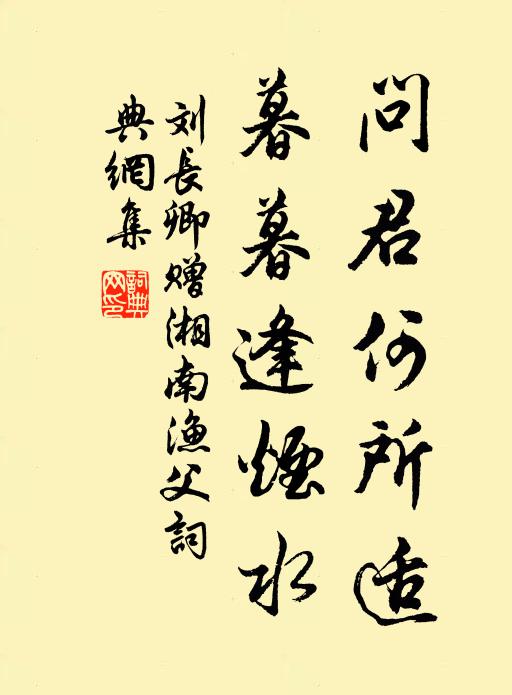 问君何所适
暮暮逢煙水
刘長卿赠湘南漁父詞
典網集
詞典网印